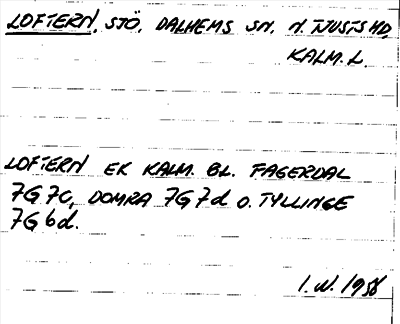 LOFTERN, SJÖ, DALHEMS SN, N. TJUSTS HD,
KALM. L.
LOFTERN EK KALM. BL. FAGERDAL
7G 7c, DOMRA 7G7d O. TYLLINGE
7G 6d.
I. W. 1958